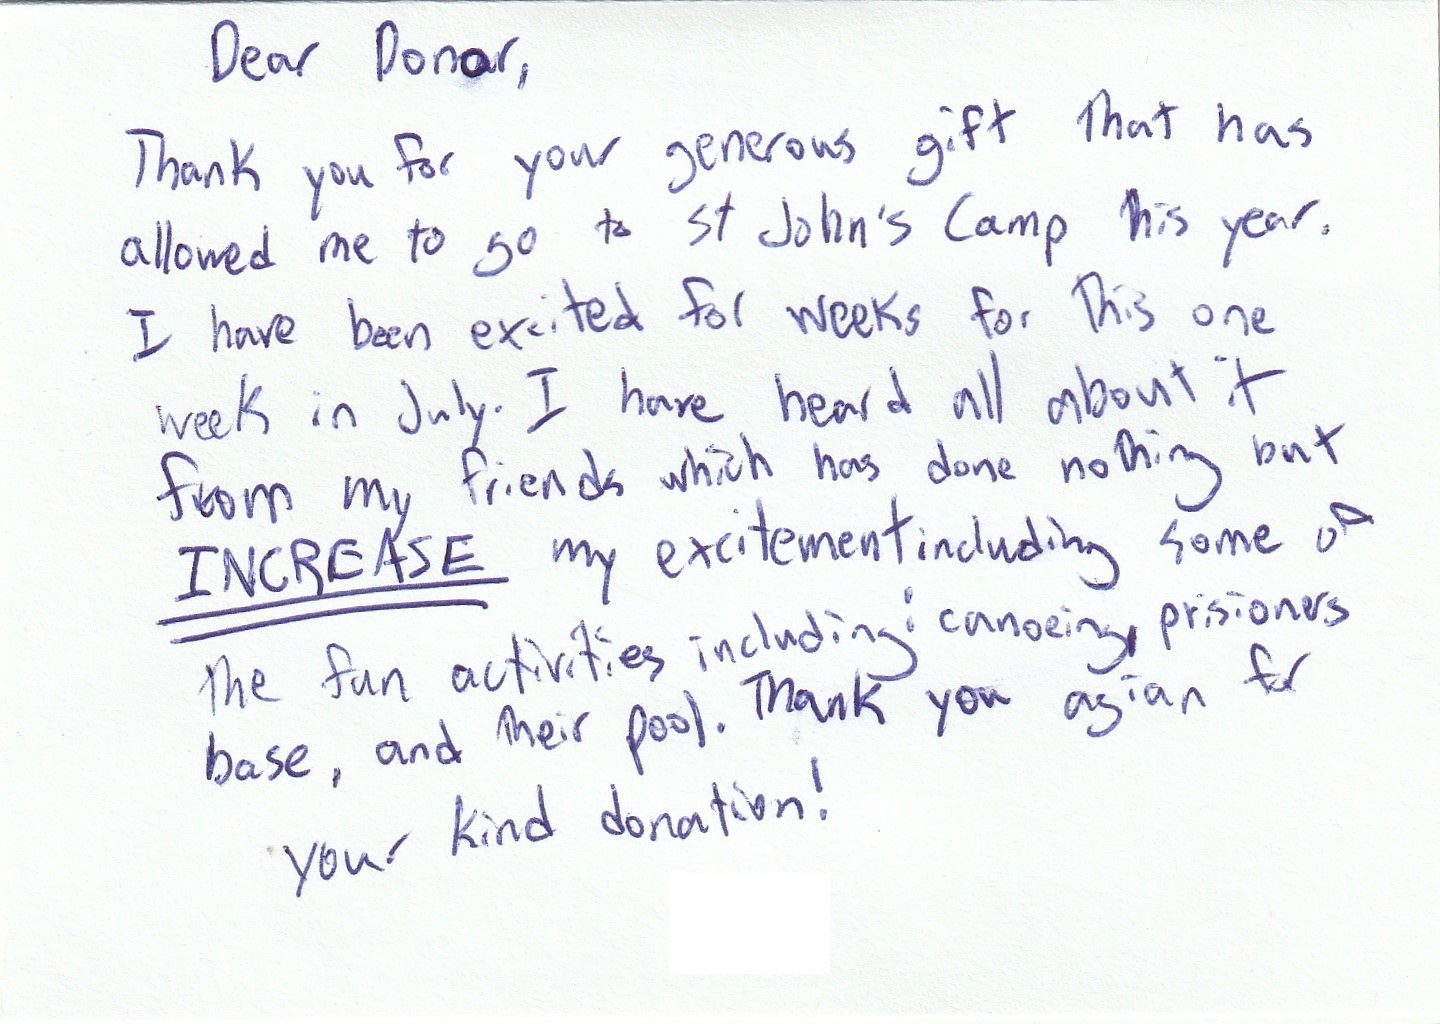 Dear Donor,
Thank you for your generous gift that has
allowed me to go to St John's Camp this year.
I have been excited for weeks for this one
week in July. I have heard all about it
from my friends which has done nothing but
INCREASE my excitement including some of
the fun activities including: canoeing, prisioners
base, and their pool. Thank you agian for
your kind donation!